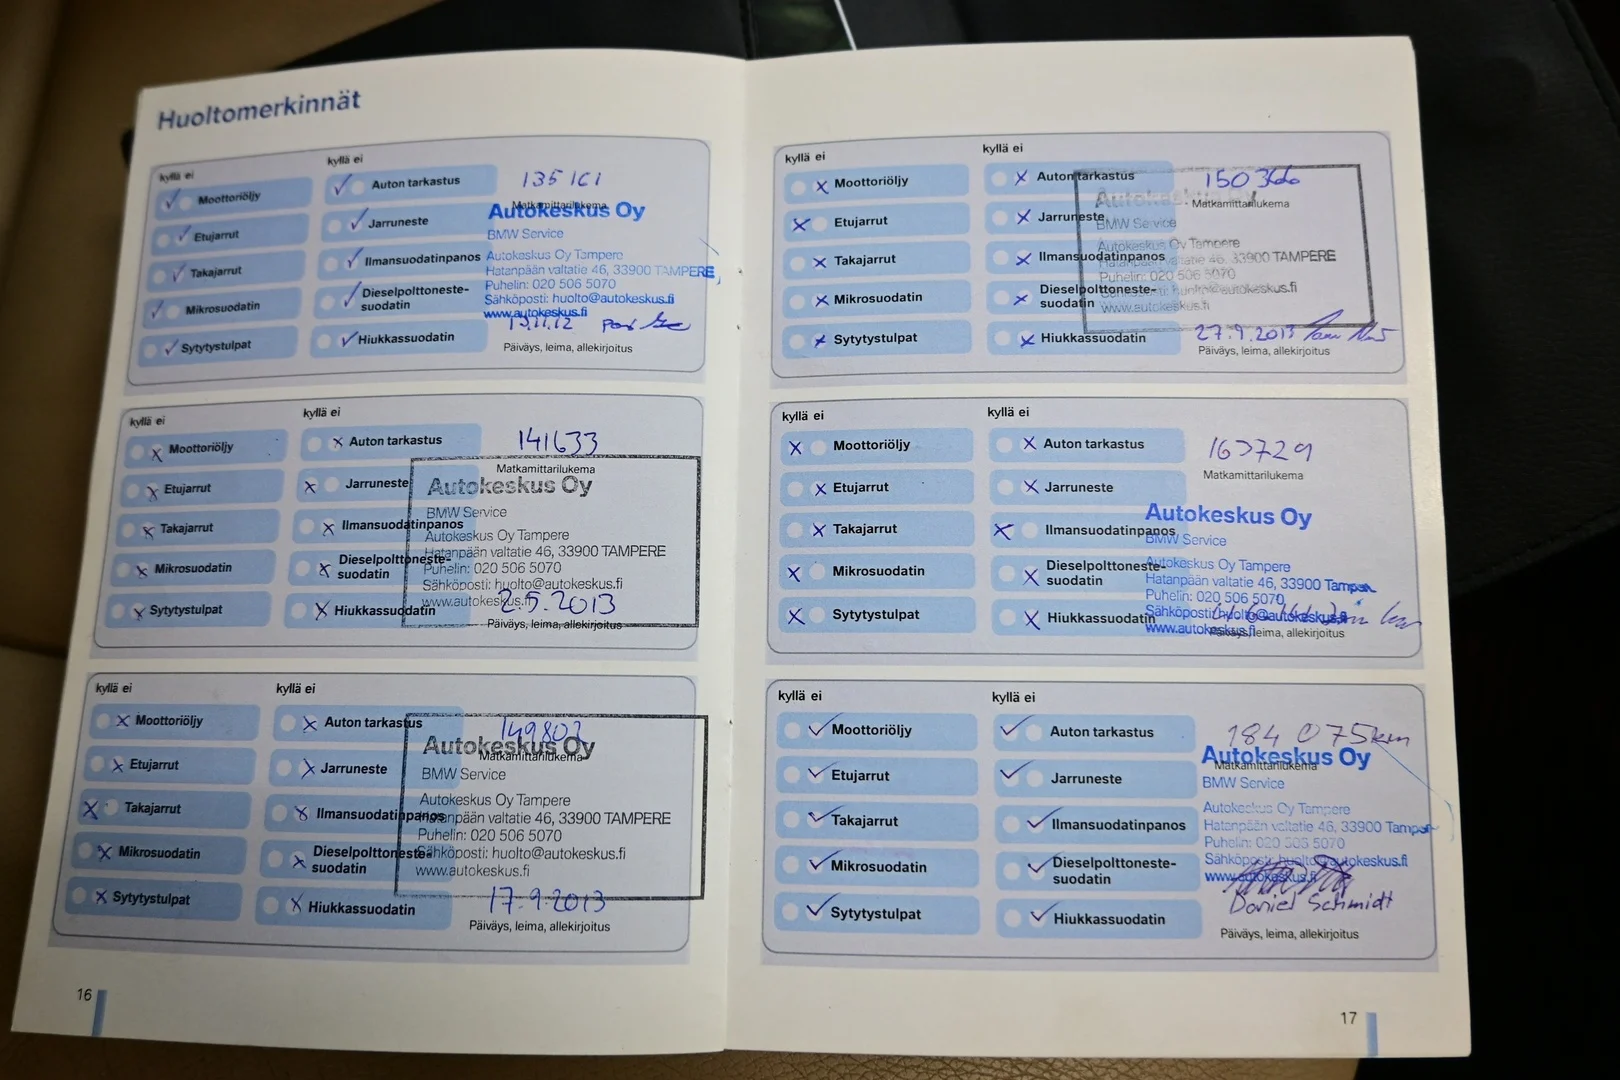 Huoltomerkinnät
kyllä ei
kyllä ei
Moottoriöljy
Auton tarkastus
Etujarrut
Jarruneste
Takajarrut
Ilmansuodatinpanos
Mikrosuodatin
Dieselpolttoneste-
suodatin
Sytytystulpat
Hiukkassuodatin
135161
Matkamittarilukema
Autokeskus Oy
BMW Service
Autokeskus Oy Tampere
Hatanpään valtatie 46, 33900 TAMPERE
Puhelin: 020 506 5070
Sähköposti: huolto@autokeskus.fi
www.autokeskus.fi
Päiväys, leima, allekirjoitus
kyllä ei
kyllä ei
Moottoriöljy
Auton tarkastus
Etujarrut
Jarruneste
Takajarrut
Ilmansuodatinpanos
Mikrosuodatin
Dieselpolttoneste-
suodatin
Sytytystulpat
Hiukkassuodatin
141633
Matkamittarilukema
Autokeskus Oy
BMW Service
Autokeskus Oy Tampere
Hatanpään valtatie 46, 33900 TAMPERE
Puhelin: 020 506 5070
Sähköposti: huolto@autokeskus.fi
www.autokeskus.fi
2.5.2013
Päiväys, leima, allekirjoitus
kyllä ei
kyllä ei
Moottoriöljy
Auton tarkastus
Etujarrut
Jarruneste
Takajarrut
Ilmansuodatinpanos
Mikrosuodatin
Dieselpolttoneste-
suodatin
Sytytystulpat
Hiukkassuodatin
149802
Autokeskus Oy
Matkamittarilukema
BMW Service
Autokeskus Oy Tampere
Hatanpään valtatie 46, 33900 TAMPERE
Puhelin: 020 506 5070
Sähköposti: huolto@autokeskus.fi
www.autokeskus.fi
17.9.2013
Päiväys, leima, allekirjoitus
16
kyllä ei
kyllä ei
Moottoriöljy
Auton tarkastus
Etujarrut
Jarruneste
Takajarrut
Ilmansuodatinpanos
Mikrosuodatin
Dieselpolttoneste-
suodatin
Sytytystulpat
Hiukkassuodatin
Matkamittarilukema
Autokeskus Oy
BMW Service
Autokeskus Oy Tampere
Hatanpään valtatie 46, 33900 TAMPERE
Puhelin: 020 506 5070
Sähköposti: huolto@autokeskus.fi
www.autokeskus.fi
27.9.2013
Päiväys, leima, allekirjoitus
kyllä ei
kyllä ei
Moottoriöljy
Auton tarkastus
Etujarrut
Jarruneste
Takajarrut
Ilmansuodatinpanos
Mikrosuodatin
Dieselpolttoneste-
suodatin
Sytytystulpat
Hiukkassuodatin
Matkamittarilukema
Autokeskus Oy
BMW Service
Autokeskus Oy Tampere
Hatanpään valtatie 46, 33900 Tampere
Puhelin: 020 506 5070
Sähköposti: huolto@autokeskus.fi
www.autokeskus.fi
Päiväys, leima, allekirjoitus
kyllä ei
kyllä ei
Moottoriöljy
Auton tarkastus
Etujarrut
Jarruneste
Takajarrut
Ilmansuodatinpanos
Mikrosuodatin
Dieselpolttoneste-
suodatin
Sytytystulpat
Hiukkassuodatin
184 075km
Autokeskus Oy
Matkamittarilukema
BMW Service
Autokeskus Oy Tampere
Hatanpään valtatie 46, 33900 Tampere
Puhelin: 020 506 5070
Sähköposti: huolto@autokeskus.fi
www.autokeskus.fi
Daniel Schmidt
Päiväys, leima, allekirjoitus
17